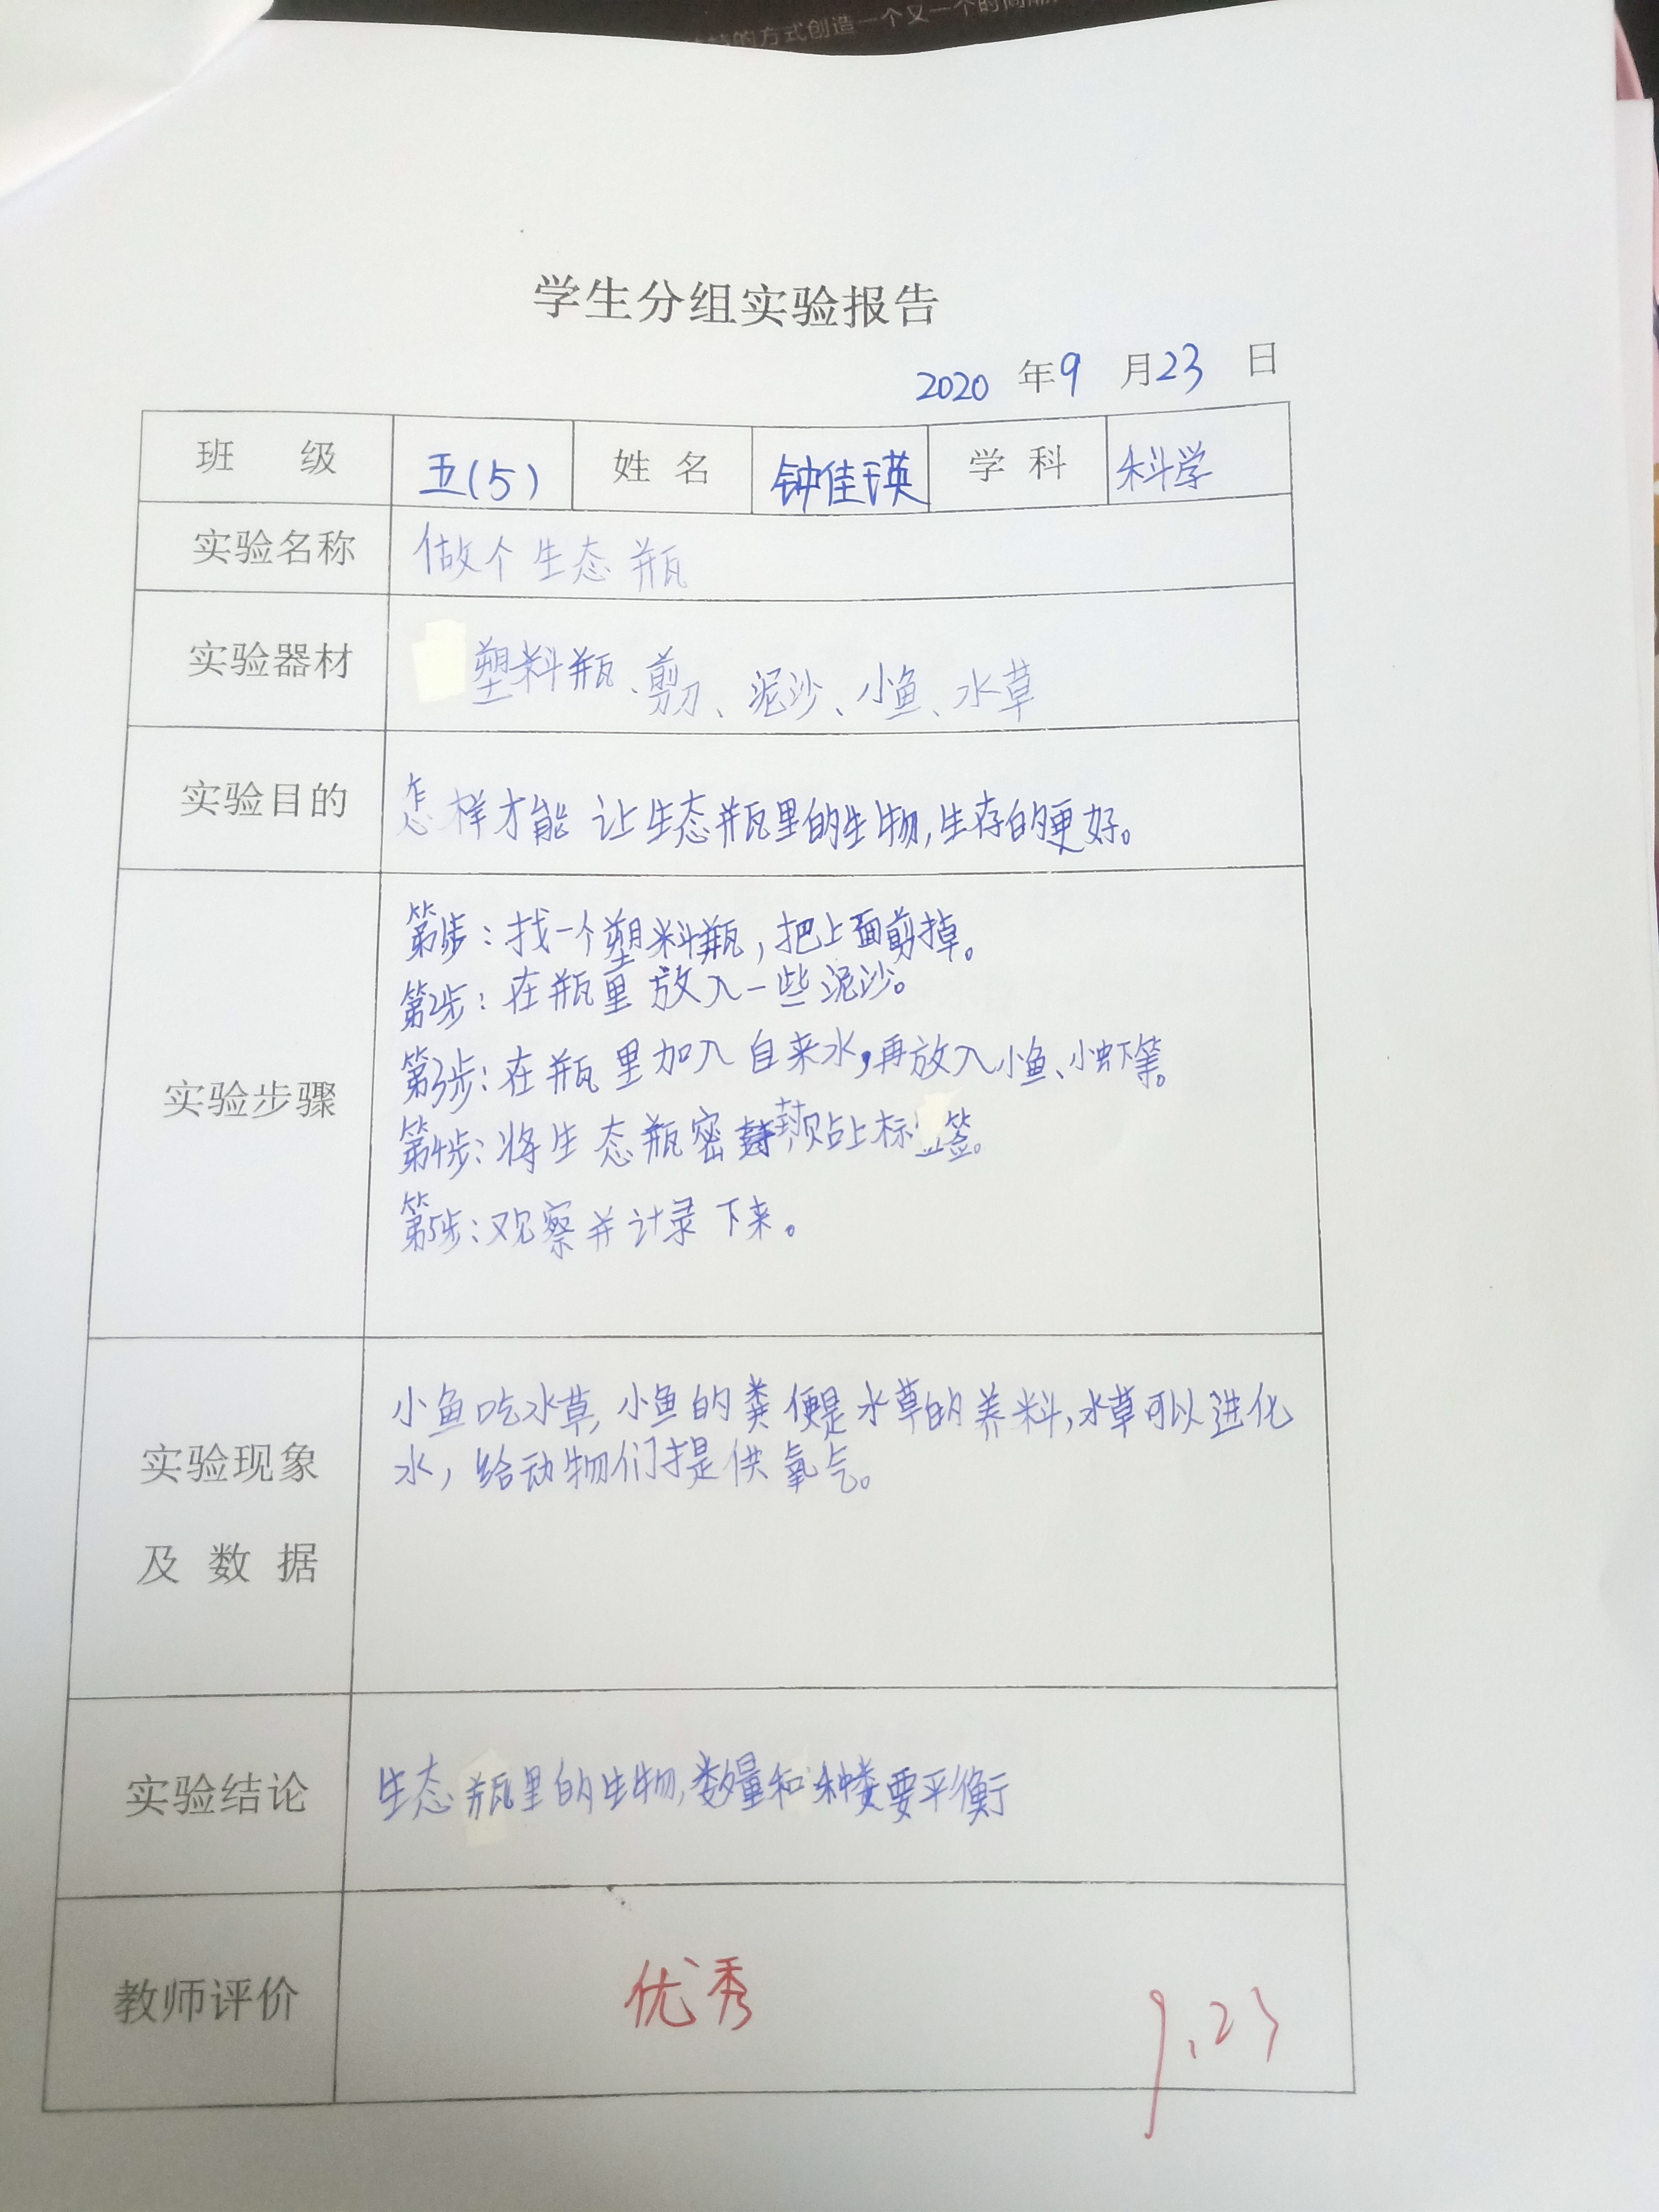 的方式创造一个又一个时间
学生分组实验报告
2020 年 9 月 23 日
班 级 五(5) 姓 名 钟佳瑛 学 科 科学
实验名称 做个生态瓶
实验器材 塑料瓶、剪刀、泥沙、小鱼、水草
实验目的 怎样才能让生态瓶里的生物,生存的更好。
第1步:找一个塑料瓶,把上面剪掉。
第2步:在瓶里放入一些泥沙。
第3步:在瓶里加入自来水,再放入小鱼、小虾等。
实验步骤
第4步:将生态瓶密封贴上标签。
第5步:观察并计录下来。
小鱼吃水草,小鱼的粪便是水草的养料,水草可以进化
水,给动物们提供氧气。
实验现象
及 数 据
实验结论 生态瓶里的生物,数量和种类要平衡
教师评价 优秀 9.23